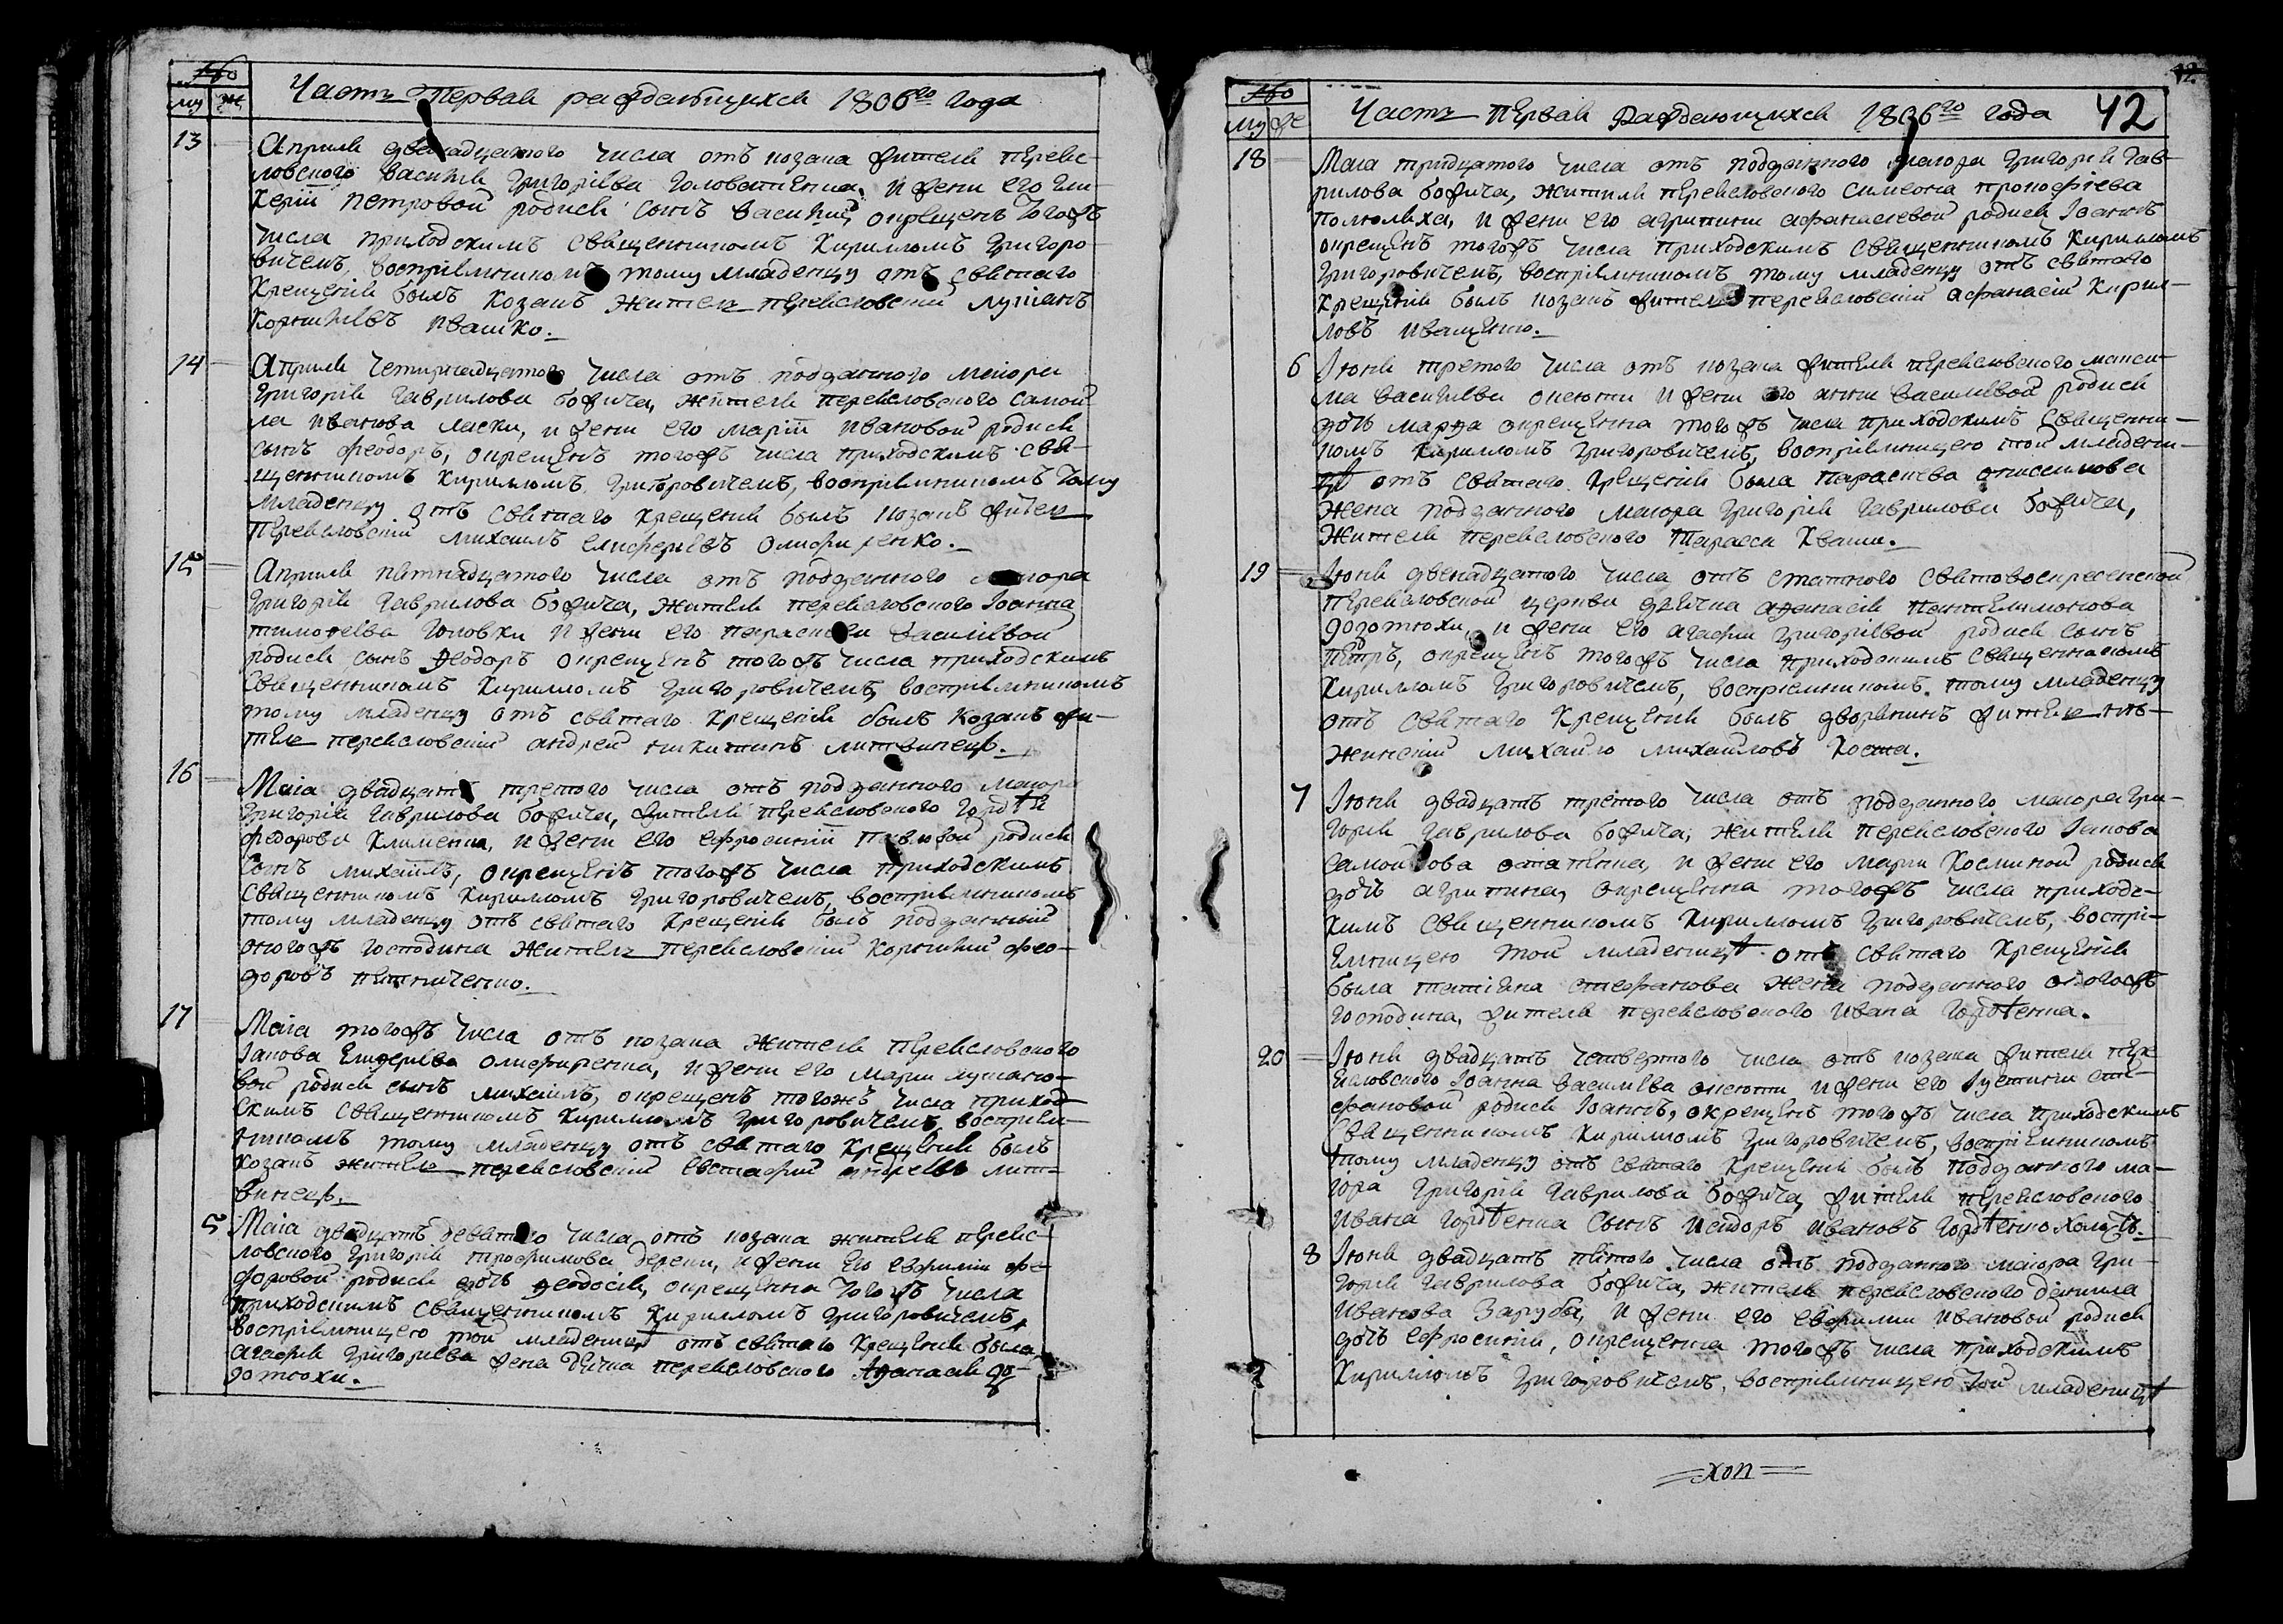 Часть Первая раждающихся 1806го года
му ж
13 Априля двенадцатого числа отъ козака жителя переяс-
ловского Василия Григоріева Головатенка, и жени его Гли-
керіи Петровой родися сынъ Василий окрещенъ тогожъ
числа приходскимъ священникомъ Кирилломъ Григоро-
вичемъ, воспріемникомъ тому младенцу отъ святаго
Крещенія былъ козакъ житель переясловский Лукіанъ
Корниліевъ Ивашко.
14 Априля четирнадцатого числа отъ подданного маіора
Григорія Гаврилова Божича, жителя переясловского Самой-
ла Иванова Ляски, и жени его Маріи Ивановой родися
сынъ Феодоръ, окрещенъ тогожъ числа приходскимъ свя-
щенникомъ Кирилломъ Григоровичемъ, воспріемникомъ тому
младенцу отъ святаго крещенія былъ козакъ житель
переясловский Михаилъ Елиферіевъ Олифиренко.
15 Априля пятнадцатого числа отъ подданного маіора
Григорія Гаврилова Божича, жителя переясловского Іоанна
Тимоѳеева Головки и жени его Параскеви Василіевой
родися сынъ Ѳеодоръ окрещенъ тогожъ числа приходскимъ
священникомъ Кирилломъ Григоровичемъ, воспріемникомъ
тому младенцу отъ святаго крещенія былъ козакъ жи-
тель переясловский Андрей Никитинъ Литвинецъ.
16 Маіа двадцать третого числа отъ подданного маіора
Григорія Гаврилова Божича, жителя переясловского Гордѣя
Федорова Клименка, и жени его Ефросиніи Павловой родися
сынъ Михаилъ, окрещенъ тогожъ числа приходскимъ
священникомъ Кирилломъ Григоровичемъ, воспріемникомъ
тому младенцу отъ святаго крещенія былъ подданний
оногожъ господина житель переясловский Корнилий Фео-
доровъ
17 Маіа тогожъ числа отъ козака жителя переясловского
Іакова Елиферіева Олифиренка, и жени его Марии Лукіано-
вой родися сынъ Михаилъ, окрещенъ тогожъ числа приход-
скимъ священникомъ Кирилломъ Григоровичемъ, воспріем-
никомъ тому младенцу отъ святаго крещенія былъ
козакъ житель переясловский Евстафий Андреевъ Лит-
винецъ.
5 Маіа двадцать девятого числа отъ козака жителя переяс-
ловского Григорія Трофимова и жени его Евфиміи Фе-
доровой родися дочь Ѳеодосія, окрещенна тогожъ числа
приходскимъ священникомъ Кирилломъ Григоровичемъ,
воспріемницею той младеницѣ отъ святаго крещенія была
Агафія Григоріева жена дячка переясловского Аѳанасія До-
зотюхи.
Часть первая раждающихся 1806го года 42
му же
18 Маіа тридцатого числа отъ подданного маіора Григорія Гав-
рилова Божича, жителя переясловского Симеона Прокофіева
и жени его Агрипини Афанасіевой родися Іоаннъ
окрещенъ тогожъ числа приходскимъ священникомъ Кирилломъ
Григоровичемъ, воспріемникомъ тому младенцу отъ святаго
крещенія былъ козакъ житель переясловский Афанасий Кирил-
ловъ Иващенко.
6 Іюня третого числа отъ козака жителя переясловского Макси-
ма Василіева и жени его Анни Василіевой родися
дочь Марѳа окрещенна тогожъ числа приходскимъ священни-
комъ Кирилломъ Григоровичемъ, воспріемницею той младени-
цѣ отъ святаго крещенія была Параскева Анисимова
жена подданного маіора Григорія Гаврилова Божича,
жителя переясловского Тараса Кваши.
19 Іюня двенадцатого числа отъ статного святовоскресенской
переясловской церкви дячка Аѳанасія Пантелимонова
Дозотюхи, и жени его Агафии Григоріевой родися сынъ
Петръ, окрещенъ тогожъ числа приходскимъ священникомъ
Кирилломъ Григоровичемъ, воспріемникомъ тому младенцу
отъ святаго крещенія былъ дворянинъ житель нѣ-
жинский Михайло Михайловъ Коста.
7 Іюня двадцать третого числа отъ подданного маіора Гри-
горія Гаврилова Божича, жителя переясловского Іакова
Самойлова и жени его Марии Косминой родися
дочь Агрипина, окрещенна тогожъ числа приходс-
кимъ священникомъ Кирилломъ Григоровичемъ, воспрі-
емницею той младеницѣ отъ святаго крещенія
была Татіяна Стефанова жена подданного оногожъ
господина, жителя переясловского Ивана Гордѣенка.
20 Іюня двадцать четвертого числа отъ козака жителя пере-
ясловского Іоанна Василіева и жени его Іустинии Сте-
фановой родися Іоаннъ, окрещенъ тогожъ числа приходскимъ
священникомъ Кирилломъ Григоровичемъ, воспріемникомъ
тому младенцу отъ святаго крещенія былъ подданного ма-
іора Григорія Гаврилова Божича, жителя переясловского
Ивана Гордѣенка сынъ Исидоръ Ивановъ Гордѣенко холостъ.
8 Іюня двадцать пятого числа отъ подданного маіора Гри-
горія Гаврилова Божича, жителя переясловского Даниила
Иванова Заруби, и жени его Евфимии Ивановой родися
дочь Ефросинія, окрещенна тогожъ числа приходскимъ
Кирилломъ Григоровичемъ, воспріемницею той младеницѣ